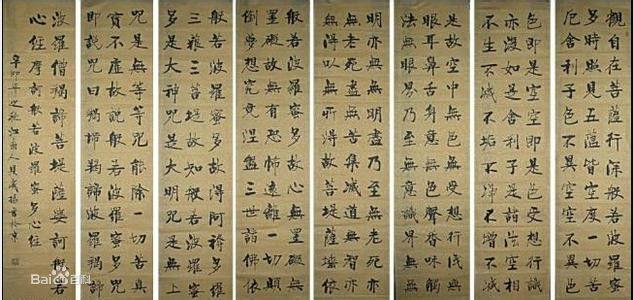 觀自在菩薩行深般若波羅蜜
多時照見五蘊皆空度一切苦
厄舍利子色不異空空不異色
色即是空空即是色受想行識
亦復如是舍利子是諸法空相
不生不滅不垢不淨不增不減
是故空中無色無受想行識無
眼耳鼻舌身意無色聲香味觸
法無眼界乃至無意識界無無
明亦無無明盡乃至無老死亦
無老死盡無苦集滅道無智亦
無得以無所得故菩提薩埵依
般若波羅蜜多故心無罣礙無
罣礙故無有恐怖遠離顛
倒夢想究竟涅盤三世諸佛依
般若波羅蜜多故得阿耨多羅
三藐三菩提故知般若波羅蜜
多是大神咒是大明咒是無上
咒是無等等咒能除一切苦真
實不虛故說般若波羅蜜多咒
即說咒曰揭諦揭諦波羅揭諦
波羅僧揭諦菩提薩婆訶般若
心經摩訶般若波羅蜜多心經
辛卯年之秋江南人
Baidu百科